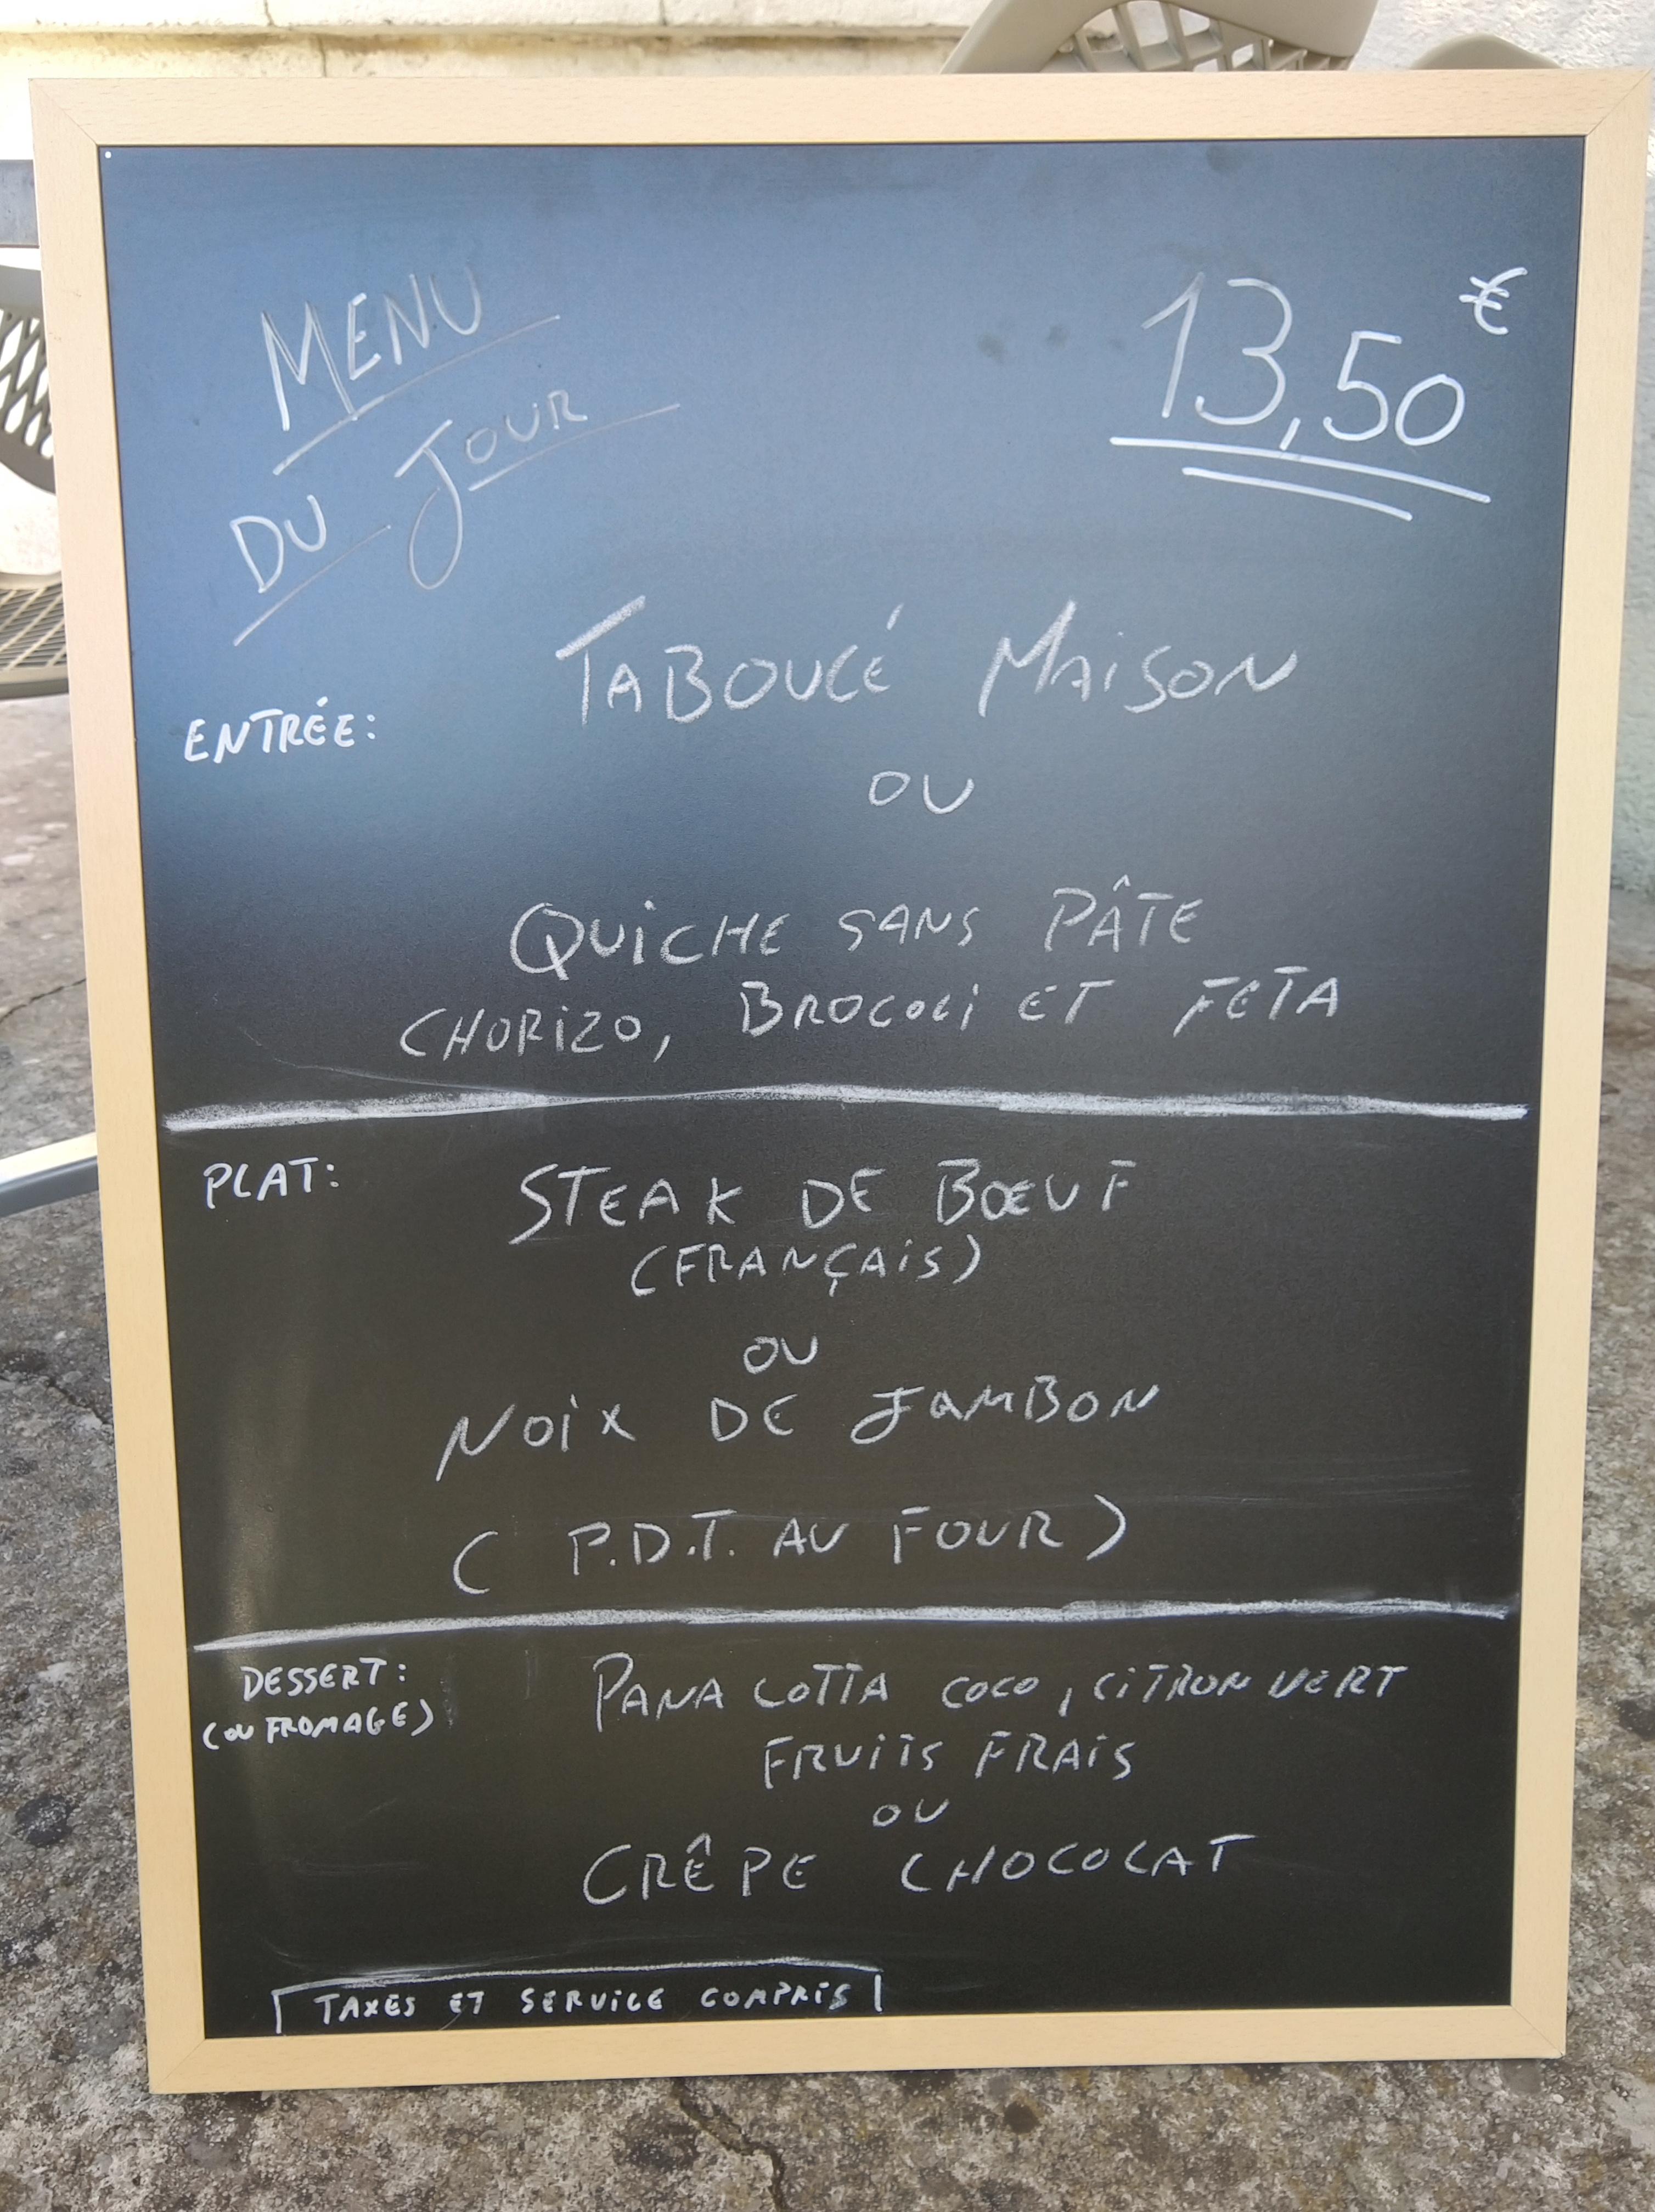 MENU
DU JOUR
13,50 €
ENTRÉE:
TABOULÉ MAISON
OU
QUICHE SANS PÂTE
CHORIZO, BROCOLI ET FETA
PLAT:
STEAK DE BŒUF
(FRANÇAIS)
OU
NOIX DE JAMBON
( P.D.T. AU FOUR )
DESSERT:
(OU FROMAGE)
PANA COTTA COCO, CITRON VERT
FRUITS FRAIS
OU
CRÊPE CHOCOLAT
TAXES ET SERVICE COMPRIS